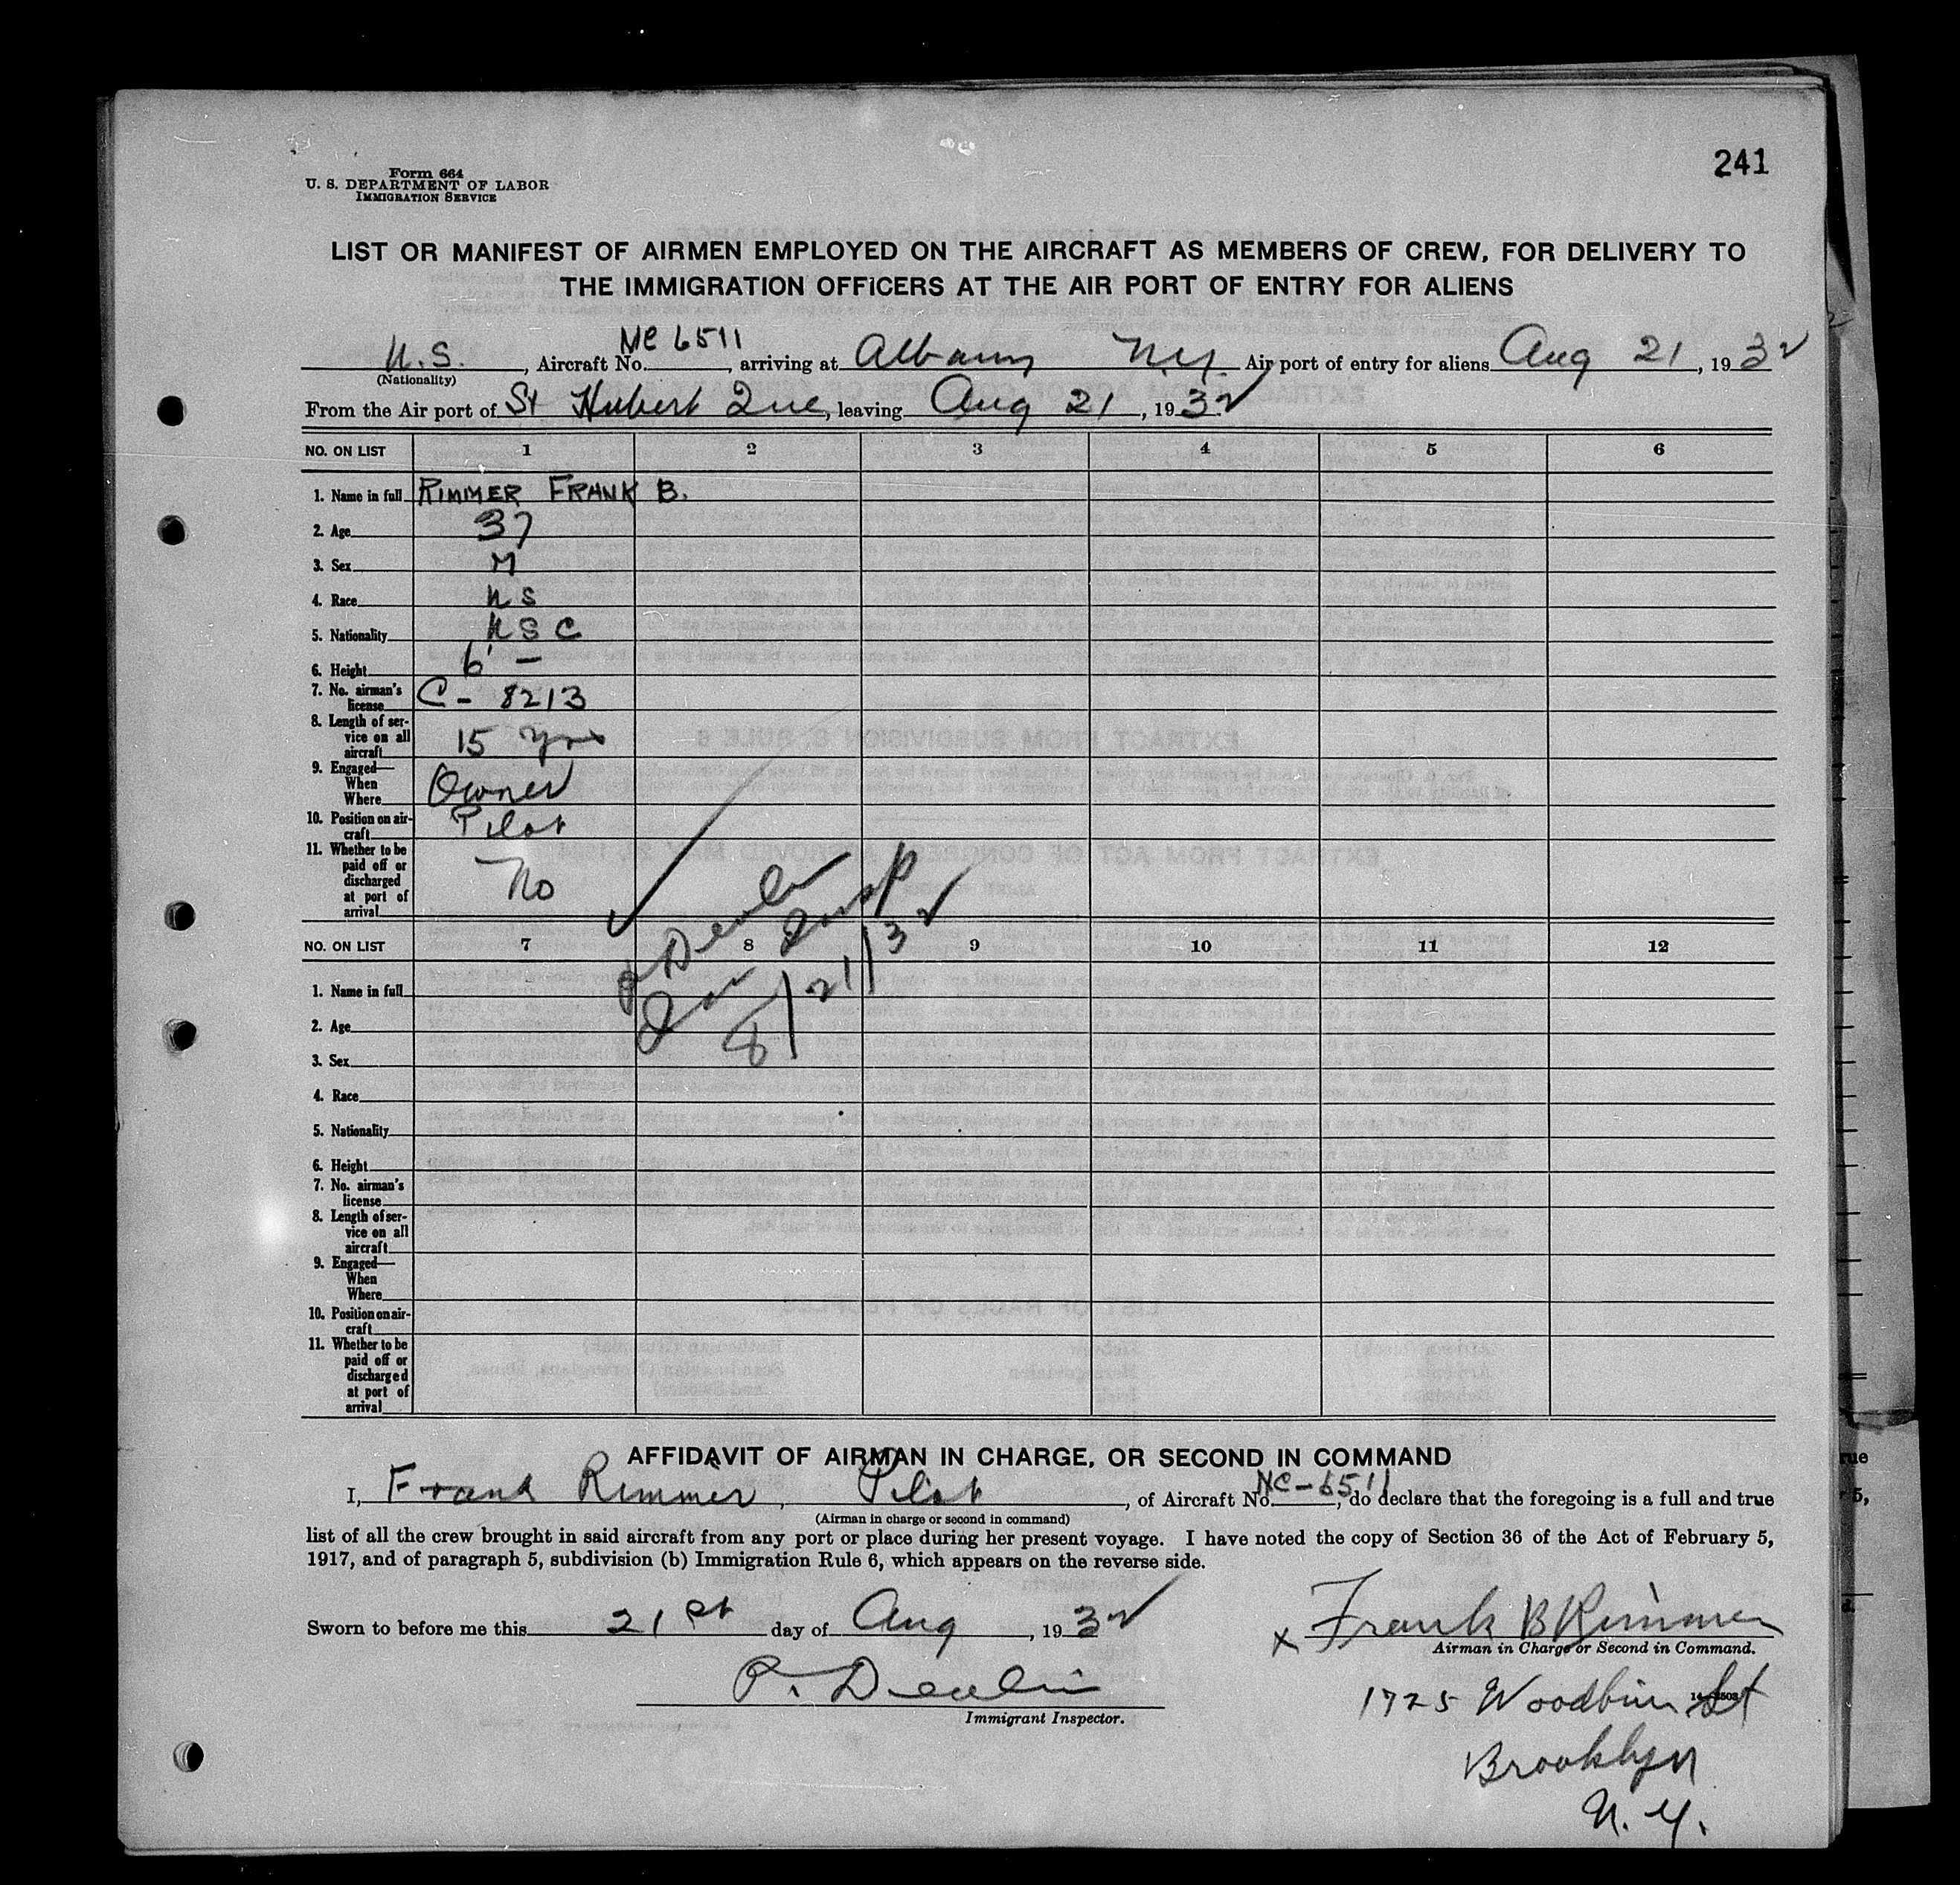 241
Form 664
U. S. DEPARTMENT OF LABOR
IMMIGRATION SERVICE
LIST OR MANIFEST OF AIRMEN EMPLOYED ON THE AIRCRAFT AS MEMBERS OF CREW, FOR DELIVERY TO
THE IMMIGRATION OFFICERS AT THE AIR PORT OF ENTRY FOR ALIENS
U.S., Aircraft No. NC 6511, arriving at Albany NY Air port of entry for aliens Aug 21, 1932
(Nationality)
From the Air port of St Hubert Que, leaving Aug 21, 1932
NO. ON LIST 1 2 3 4 5 6
1. Name in full RIMMER FRANK B.
2. Age 37
3. Sex M
4. Race US
5. Nationality USC
6. Height 6' –
7. No. airman's
license C - 8213
8. Length of ser-
vice on all
aircraft 15 yrs
9. Engaged—
When
Where Owner
10. Position on air-
craft Pilot
11. Whether to be
paid off or
discharged
at port of
arrival No
P Devlin
Insp
8/21/32
NO. ON LIST 7 8 9 10 11 12
1. Name in full
2. Age
3. Sex
4. Race
5. Nationality
6. Height
7. No. airman's
license
8. Length of ser-
vice on all
aircraft
9. Engaged—
When
Where
10. Position on air-
craft
11. Whether to be
paid off or
discharged
at port of
arrival
AFFIDAVIT OF AIRMAN IN CHARGE, OR SECOND IN COMMAND
I, Frank Rimmer, Pilot, of Aircraft No. NC-6511, do declare that the foregoing is a full and true
(Airman in charge or second in command)
list of all the crew brought in said aircraft from any port or place during her present voyage. I have noted the copy of Section 36 of the Act of February 5,
1917, and of paragraph 5, subdivision (b) Immigration Rule 6, which appears on the reverse side.
Sworn to before me this 21st day of Aug, 1932
x Frank B Rimmer
Airman in Charge or Second in Command.
P. Devlin
Immigrant Inspector.
1725 Woodbine St
Brooklyn
N.Y.